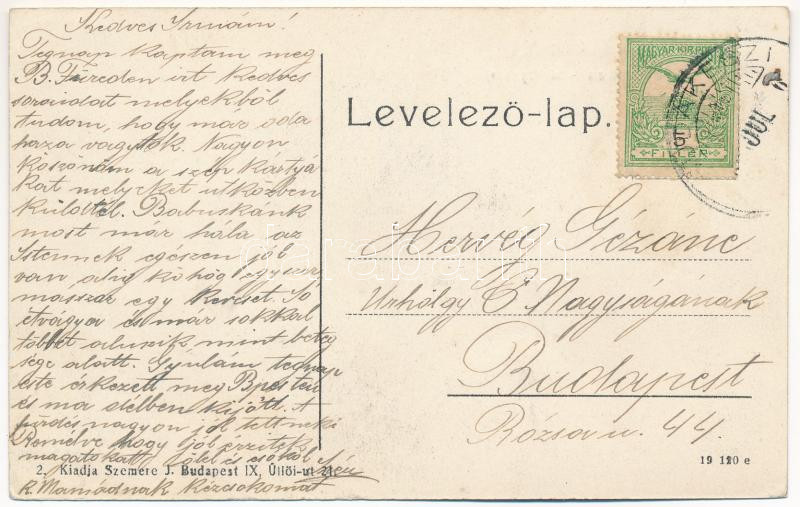 Kedves Irmám!
Tegnap kaptam meg
B. Füreden irt kedves
soraidat melyekből
tudom, hogy már oda
haza vagytok. Nagyon
köszönöm a szép kártyá
kat melyeket utközben
küldtél. Babuskánk
most már hála az
Istennek egészen jól
van, alig köhög egymás
egy keveset. Jó
étvágya és már sokkal
többet aluszik mint beteg
sége alatt. Gyulám tegnap
este érkezett meg Bpestről
és ma délben kijött. A
fürdés nagyon jól tett neki
Remélve hogy jól érzitek
magatokat ölel és csókol
K. Mamádnak kézcsókomat
2. Kiadja Szemere J. Budapest IX, Üllői-ut 21.
Levelező-lap.
MAGYAR KIR. POSTA
5
FILLÉR
Hervég Gézáné
Urhölgy Ő Nagyságának
Budapest
Rózsa u. 44.
19 120 e
darabanth